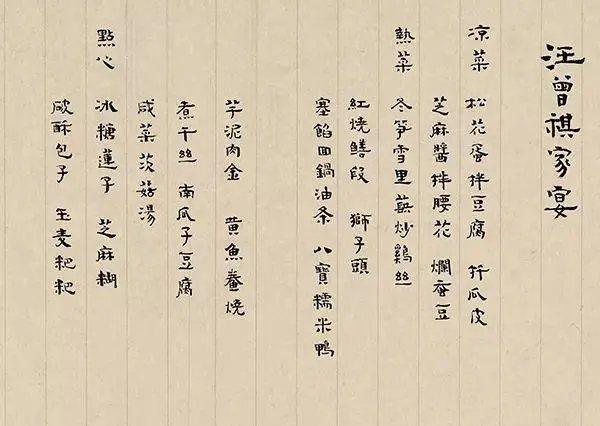 汪曾祺家宴
涼菜 松花蛋拌豆腐 扦瓜皮
芝麻醬拌腰花 爛蚕豆
熱菜 冬笋雪里蕻炒鷄丝
紅燒鳝段 獅子頭
塞餡回鍋油条 八寶糯米鴨
芋泥肉金 黄魚鲞燒
煮干丝 南瓜子豆腐
咸菜茨菇湯
點心 冰糖蓮子 芝麻糊
破酥包子 玉麦粑粑